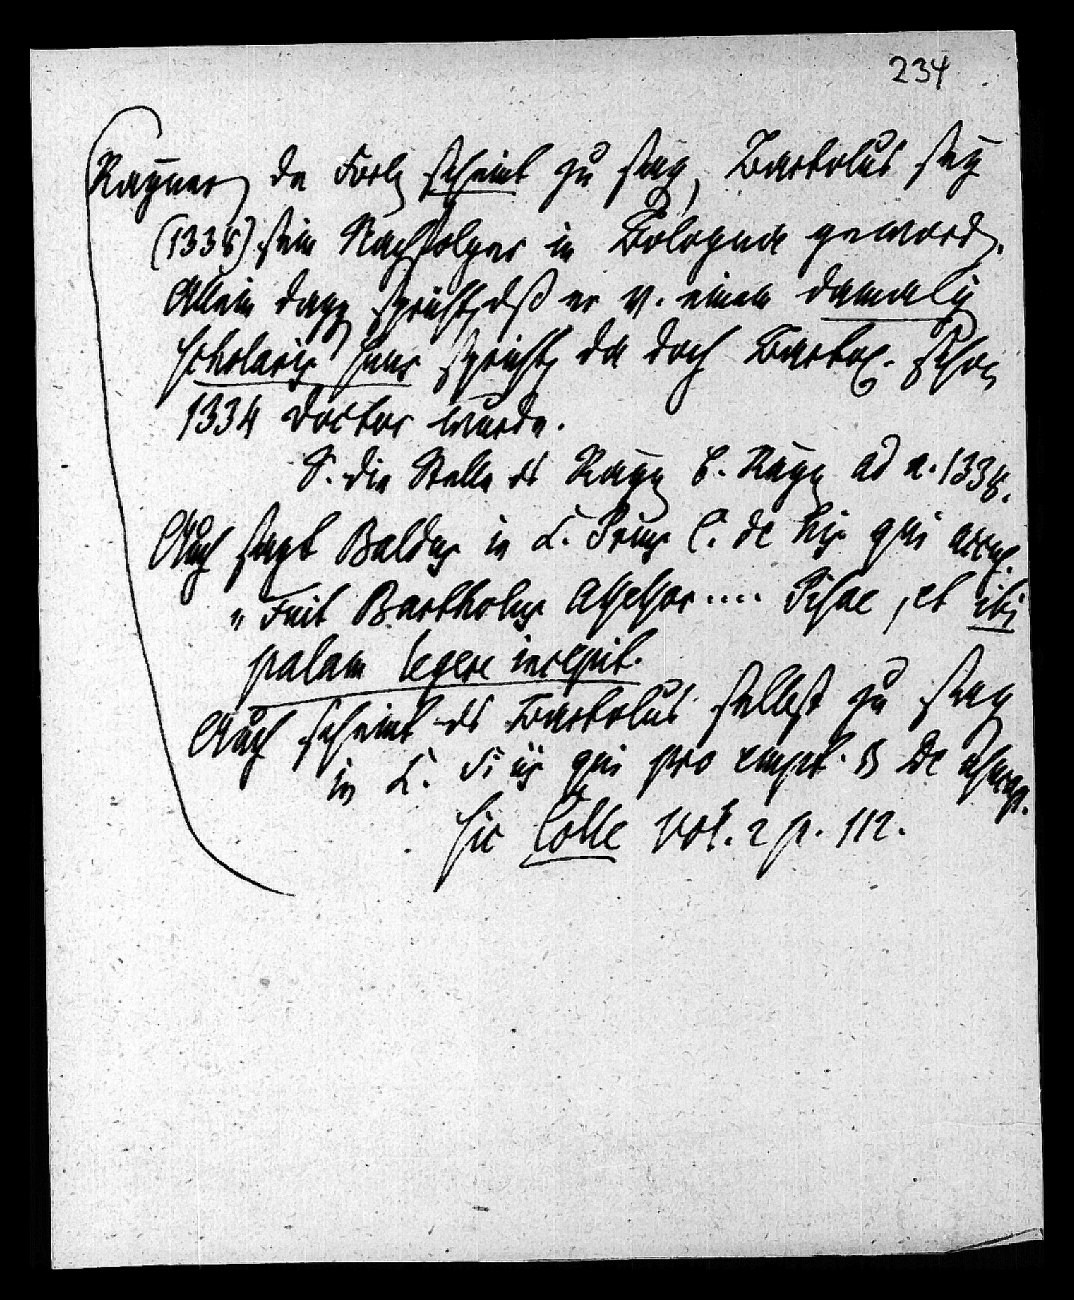 234
Rayner de Forlj scheint zu sag, Bartolus sey
(1338) sein Nachfolger in Bologna geword.
Allein dagg spricht, dß er v. einem damalig
scholaris suus spricht, da doch Bartol. schon
1334 Doctor wurde.
S. die Stelle ds Rayn b. Rayn ad a. 1338.
Auch sagt Baldus in L. Prius C. de his qui accus.
"Fuit Bartholus Assessor .... Pisae, et ibi
palam legere incepit.
Auch scheint ds Bartolus selbst zu sag
in L. Si is qui pro empt. ß De usucap.
sic Colle vol. 2 p. 112.